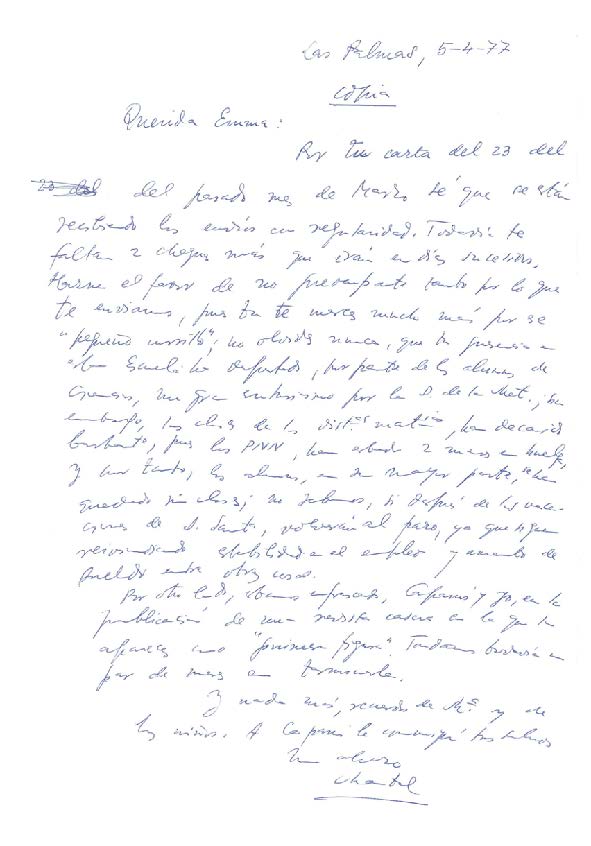 Las Palmas, 5-4-77
copia
Querida Emma:
Por tu carta del 23 del
del pasado mes de Marzo sé que se están
recibiendo los envíos con regularidad. Todavía te
faltan 2 cheques más que irán en días sucesivos.
Hazme el favor de no preocuparte tanto por lo que
te enviamos, pues tu te mereces mucho más por ese
"pequeño cursillo"; no olvides nunca, que tu presencia en
Escuela ha despertado, por parte de los alumnos de
, un gran entusiasmo por la D. de la Mat., sin
embargo, las clases de las dist.as materias, han decaído
bastante, pues los PNN, han estado 2 meses en huelga,
y por tanto, los alumnos, en su mayor parte, han
quedado sin clases; no sabemos, si después de las vaca-
ciones de S. Santa, volverán al paro, ya que siguen
estabilidad en el empleo y aumento de
sueldo entre otras cosas.
Por otro lado, estamos empezando, y yo, en la
publicación de una revista casera en la que tu
apareces como "primera figura". Tardaremos todavía un
par de meses en terminarla.
Y nada más, recuerdos de Mª y de
los niños. A le comuniqué tus saludos
Un abrazo